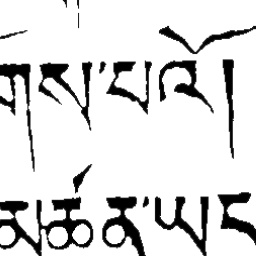 གོས་པའོ།
མཚན་ཡང